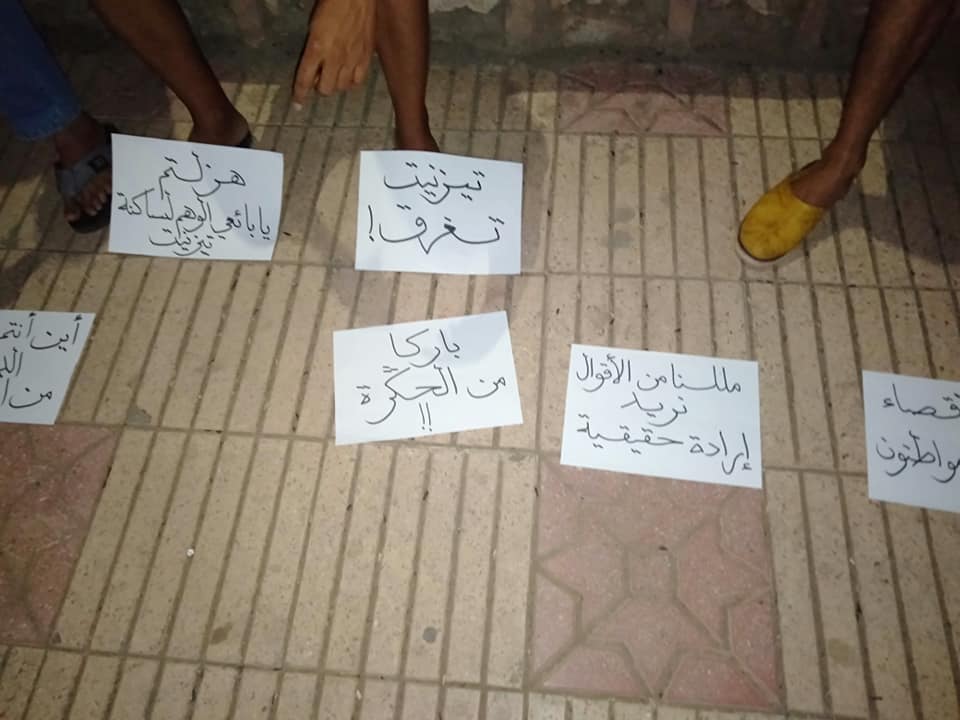 هزلتم
يا بائعي الوهم لساكنة
تيزنيت
تيزنيت
تغرق!
أين أنتم
من
باركا
من الحكرة
!!
مللنا من الأقوال
نريد
إرادة حقيقية